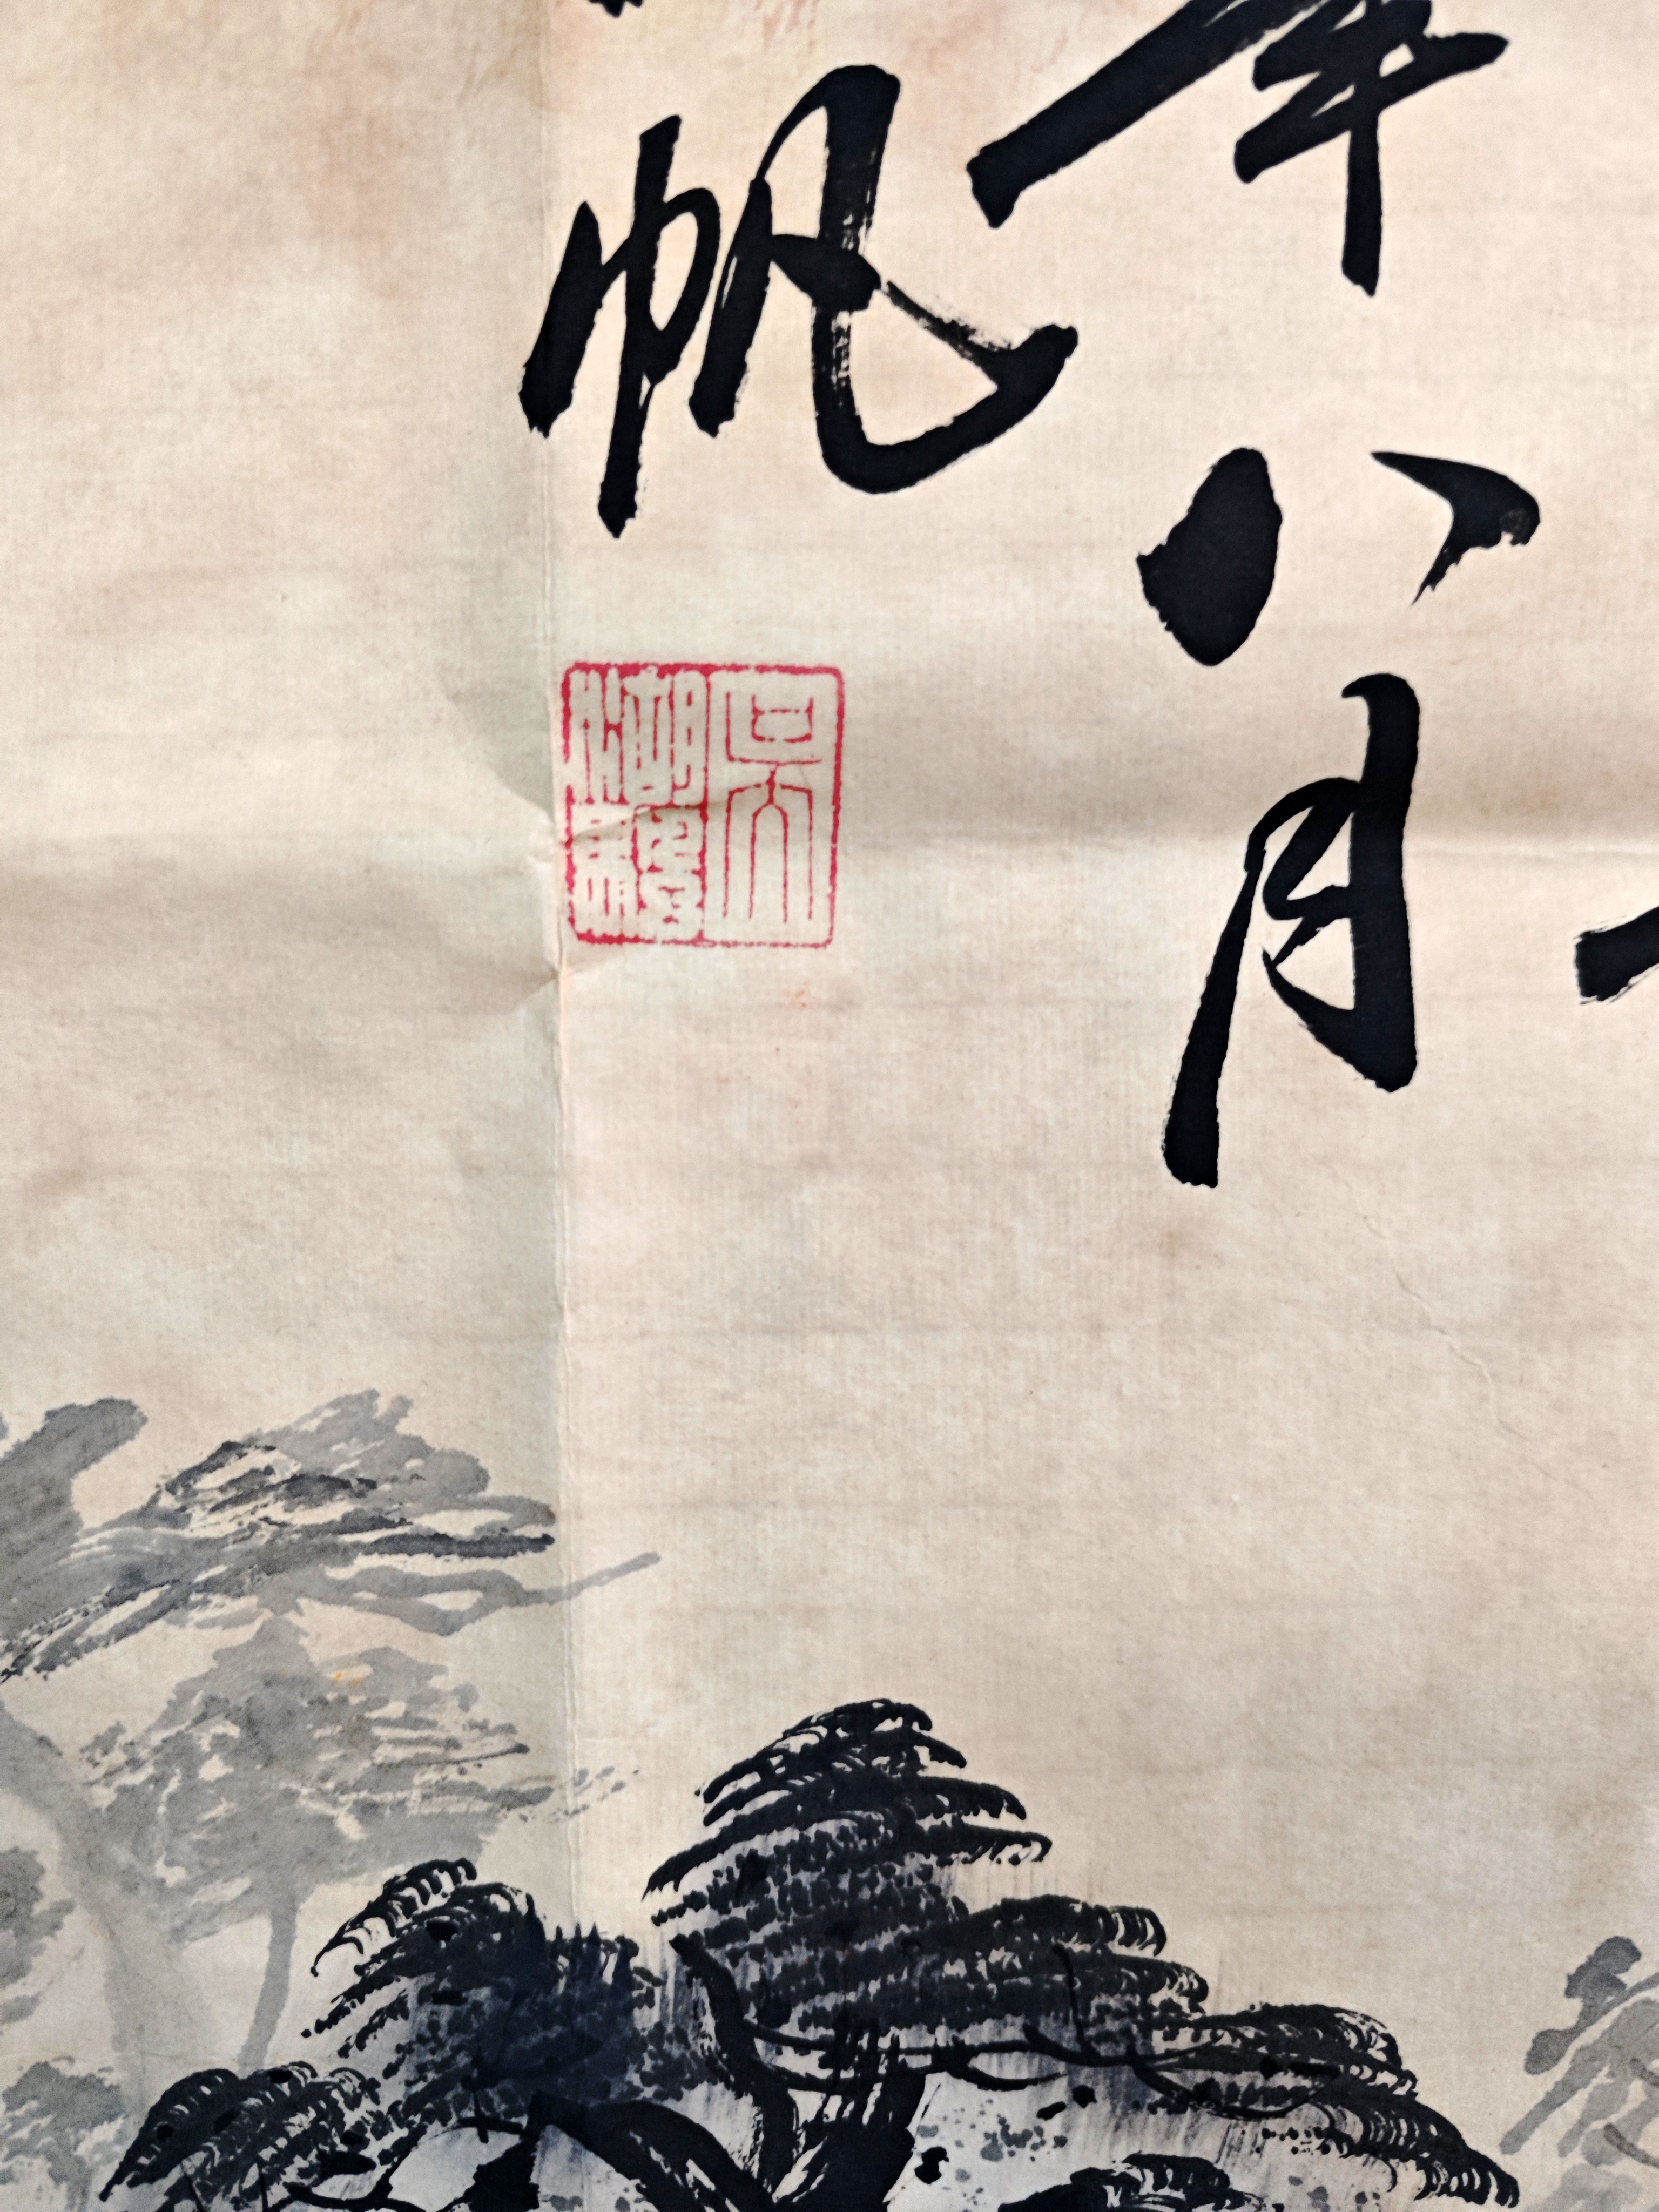 年八月
帆
吳湖帆